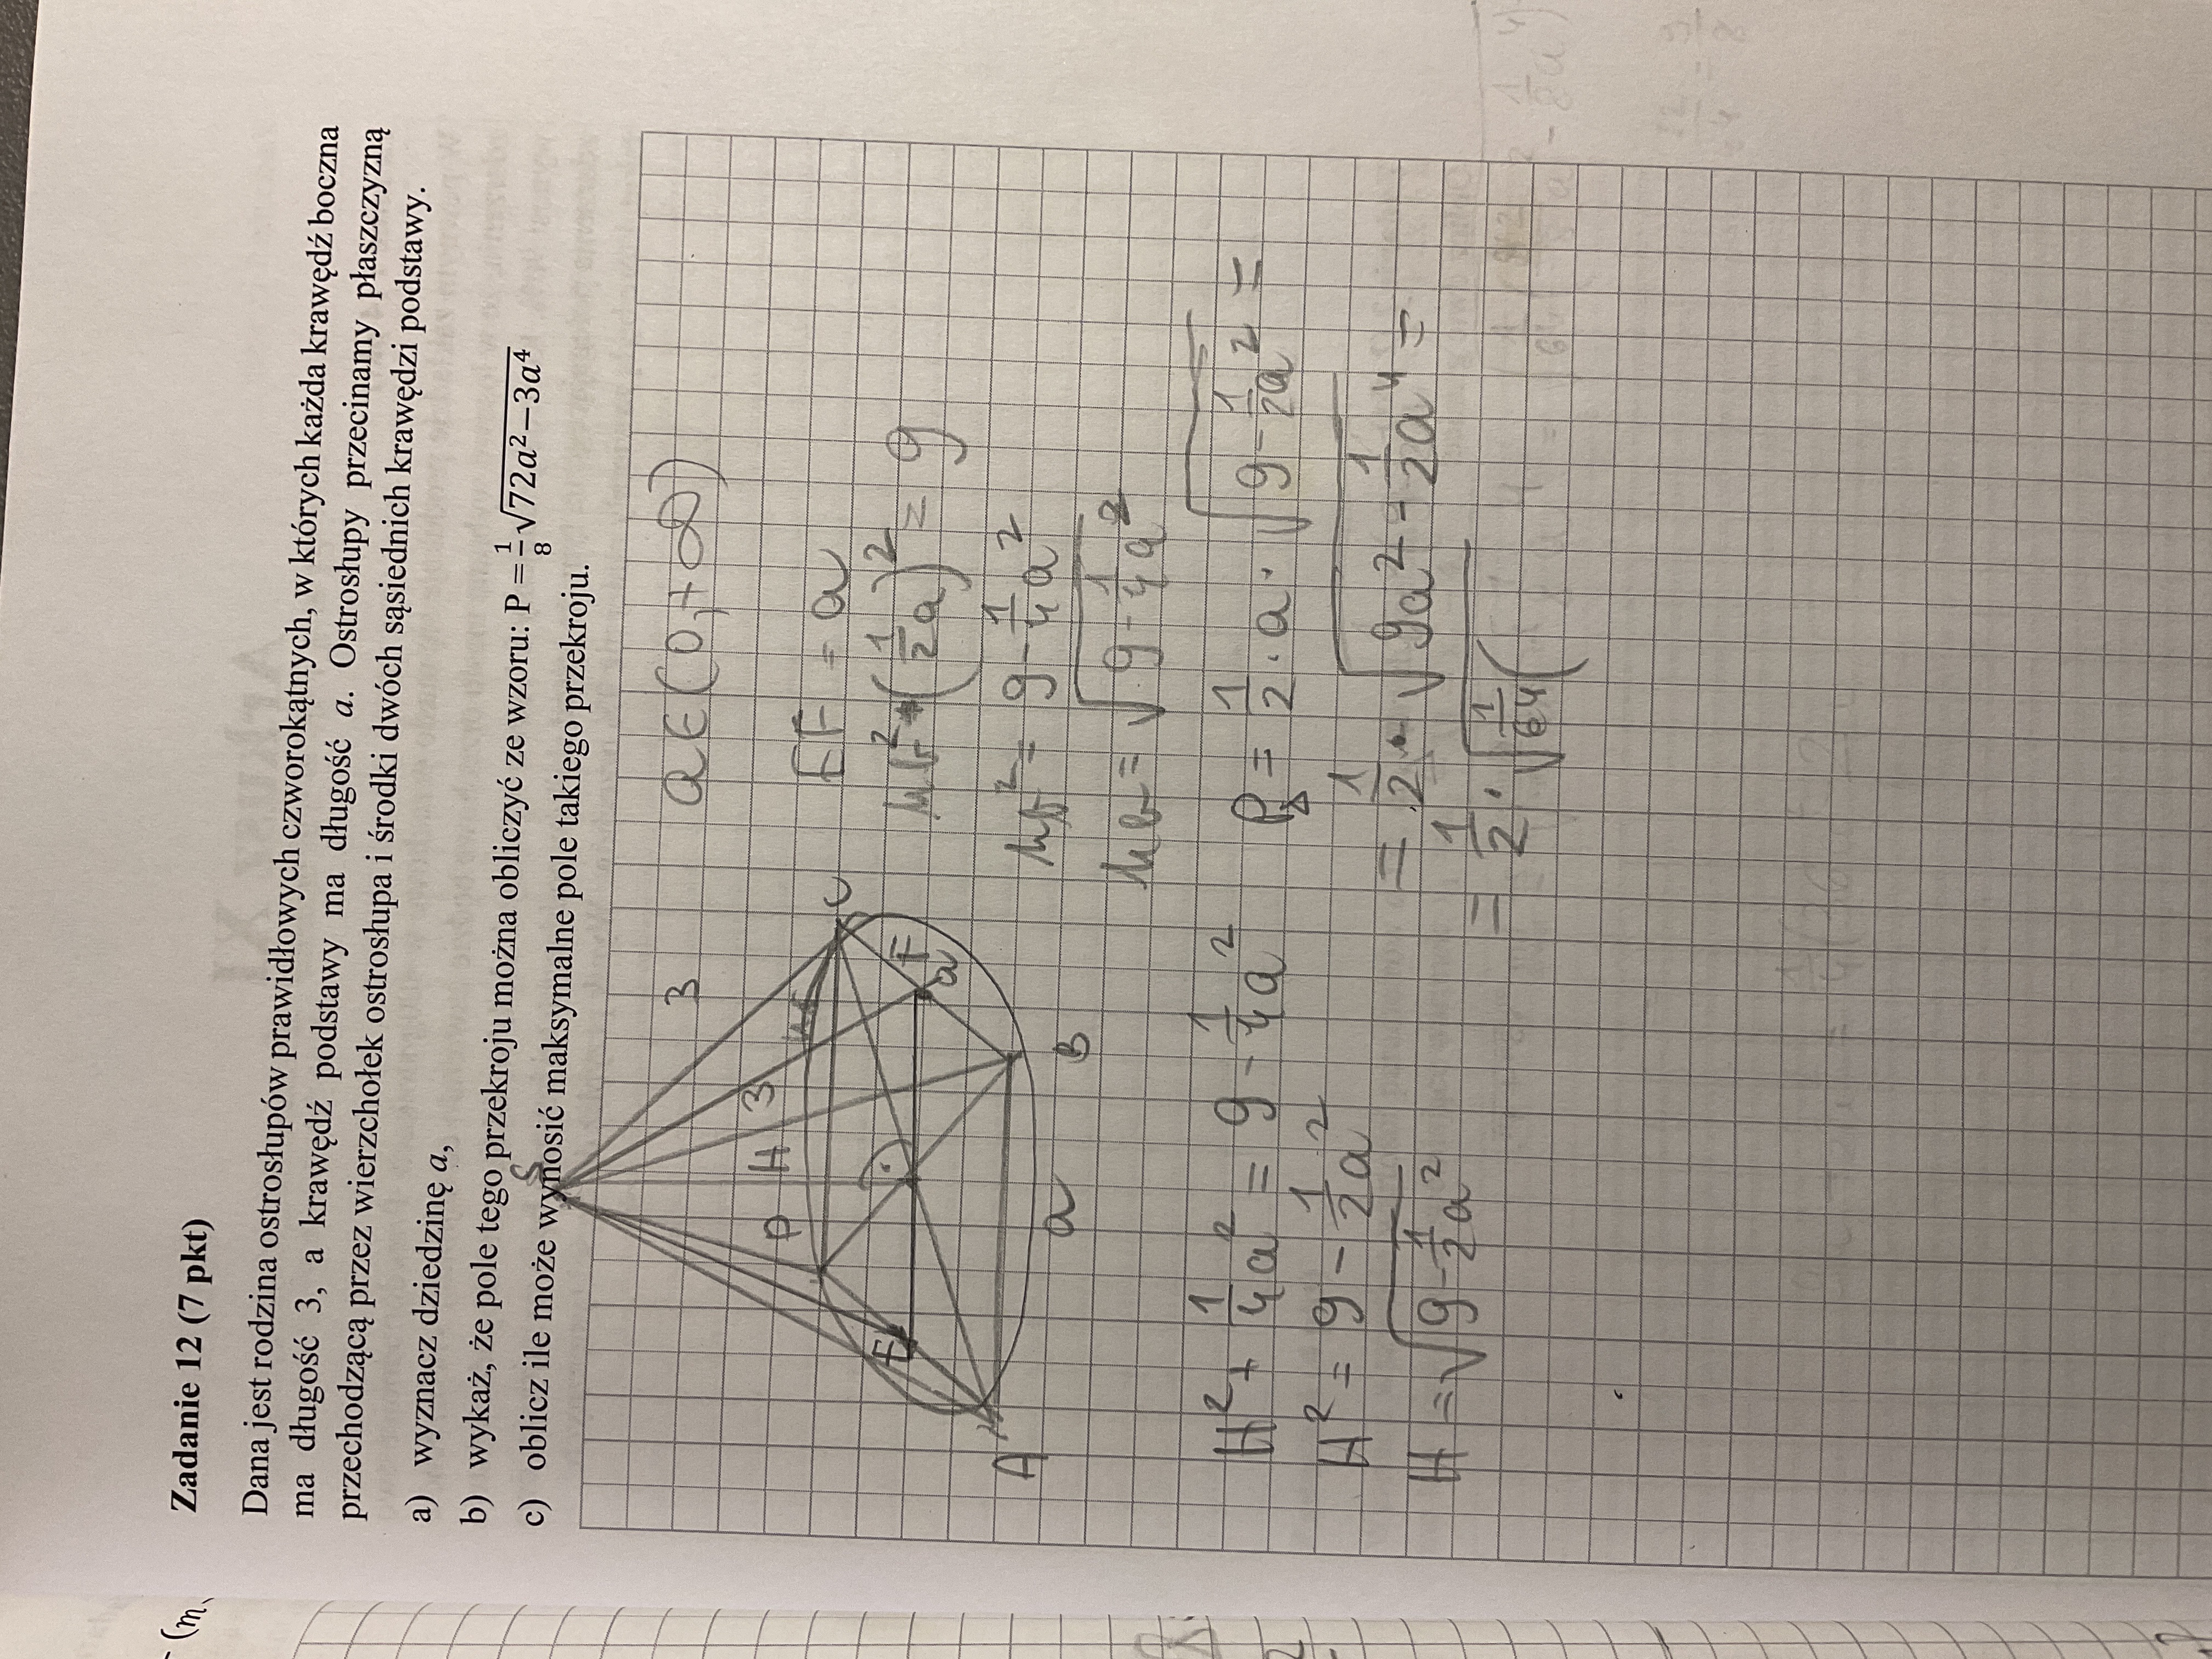 Zadanie 12 (7 pkt)
Dana jest rodzina ostrosłupów prawidłowych czworokątnych, w których każda krawędź boczna
ma długość 3, a krawędź podstawy ma długość a. Ostrosłupy przecinamy płaszczyzną
przechodzącą przez wierzchołek ostrosłupa i środki dwóch sąsiednich krawędzi podstawy.
a) wyznacz dziedzinę a,
b) wykaż, że pole tego przekroju można obliczyć ze wzoru: P = 1/8 √(72a² − 3a⁴)
c) oblicz ile może wynosić maksymalne pole takiego przekroju.
a ∈ (0, +∞)
S
3
D
H
3
C
E
F
a
A
B
a
EF = a
hb² + (1/2 a)² = 9
hb² = 9 - 1/4 a²
hb = √(9 - 1/4 a²)
H² + 1/4 a² = 9 - 1/4 a²
H² = 9 - 1/2 a²
H = √(9 - 1/2 a²)
P△ = 1/2 · a · √(9 - 1/2 a²) =
= 1/2 · √(9a² - 1/2 a⁴) =
= 1/2 · √(1/64 (